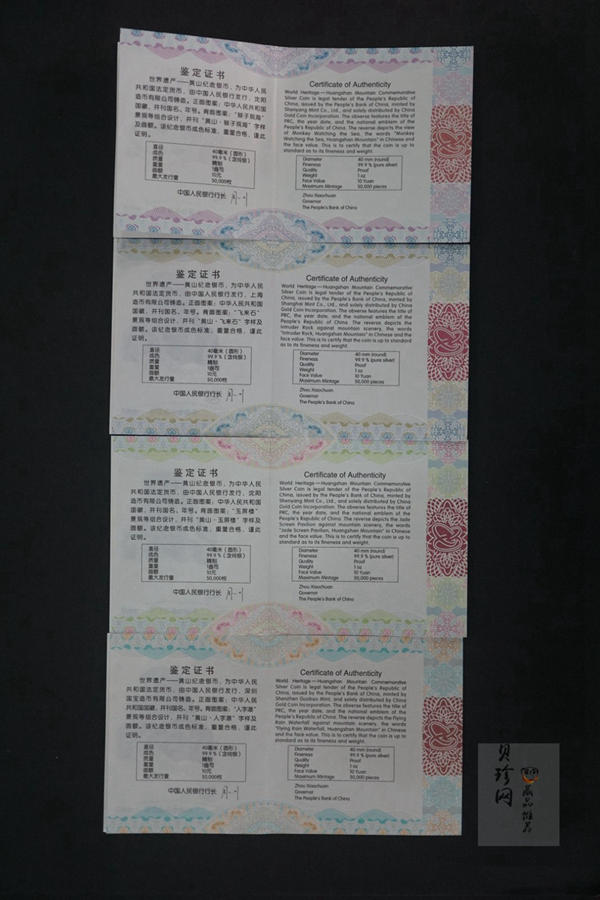 鉴定证书
世界遗产——黄山纪念银币，为中华人民
共和国法定货币，由中国人民银行发行，沈阳
造币有限公司铸造。正面图案：中华人民共和国
国徽，并刊国名、年号。背面图案：“猴子观海”
景观等组合设计，并刊“黄山·猴子观海”字样
及面额。该纪念银币成色标准，重量合格，谨此
证明。
直径 40毫米（圆形）
成色 99.9％（含纯银）
质量 精制
重量 1盎司
面额 10元
最大发行量 50,000枚
中国人民银行行长
Certificate of Authenticity
World Heritage—Huangshan Mountain Commemorative
Silver Coin is legal tender of the People's Republic of
China, issued by the People's Bank of China, minted by
Shenyang Mint Co., Ltd., and solely distributed by China
Gold Coin Incorporation. The obverse features the title of
PRC, the year date, and the national emblem of the
People's Republic of China. The reverse depicts the view
of Monkey Watching the Sea, the words "Monkey
Watching the Sea, Huangshan Mountain" in Chinese and
the face value. This is to certify that the coin is up to
standard as to its fineness and weight.
Diameter 40 mm (round)
Fineness 99.9 % (pure silver)
Quality Proof
Weight 1 oz
Face Value 10 Yuan
Maximum Mintage 50,000 pieces
Zhou Xiaochuan
Governor
The People's Bank of China
鉴定证书
世界遗产——黄山纪念银币，为中华人民
共和国法定货币，由中国人民银行发行，上海
造币有限公司铸造。正面图案：中华人民共和国
国徽，并刊国名、年号。背面图案：“飞来石”
景观等组合设计，并刊“黄山·飞来石”字样及
面额。该纪念银币成色标准，重量合格，谨此
证明。
直径 40毫米（圆形）
成色 99.9％（含纯银）
质量 精制
重量 1盎司
面额 10元
最大发行量 50,000枚
中国人民银行行长
Certificate of Authenticity
World Heritage—Huangshan Mountain Commemorative
Silver Coin is legal tender of the People's Republic of
China, issued by the People's Bank of China, minted by
Shanghai Mint Co., Ltd., and solely distributed by China
Gold Coin Incorporation. The obverse features the title of
PRC, the year date, and the national emblem of the
People's Republic of China. The reverse depicts the
Intruder Rock against mountain scenery, the words
"Intruder Rock, Huangshan Mountain" in Chinese and the
face value. This is to certify that the coin is up to standard
as to its fineness and weight.
Diameter 40 mm (round)
Fineness 99.9 % (pure silver)
Quality Proof
Weight 1 oz
Face Value 10 Yuan
Maximum Mintage 50,000 pieces
Zhou Xiaochuan
Governor
The People's Bank of China
鉴定证书
世界遗产——黄山纪念银币，为中华人民
共和国法定货币，由中国人民银行发行，沈阳
造币有限公司铸造。正面图案：中华人民共和国
国徽，并刊国名、年号。背面图案：“玉屏楼”
景观等组合设计，并刊“黄山·玉屏楼”字样及
面额。该纪念银币成色标准，重量合格，谨此
证明。
直径 40毫米（圆形）
成色 99.9％（含纯银）
质量 精制
重量 1盎司
面额 10元
最大发行量 50,000枚
中国人民银行行长
Certificate of Authenticity
World Heritage—Huangshan Mountain Commemorative
Silver Coin is legal tender of the People's Republic of
China, issued by the People's Bank of China, minted by
Shenyang Mint Co., Ltd., and solely distributed by China
Gold Coin Incorporation. The obverse features the title of
PRC, the year date, and the national emblem of the
People's Republic of China. The reverse depicts the Jade
Screen Pavilion against mountain scenery, the words
"Jade Screen Pavilion, Huangshan Mountain" in Chinese
and the face value. This is to certify that the coin is up to
standard as to its fineness and weight.
Diameter 40 mm (round)
Fineness 99.9 % (pure silver)
Quality Proof
Weight 1 oz
Face Value 10 Yuan
Maximum Mintage 50,000 pieces
Zhou Xiaochuan
Governor
The People's Bank of China
鉴定证书
世界遗产——黄山纪念银币，为中华人民
共和国法定货币，由中国人民银行发行，深圳
国宝造币有限公司铸造。正面图案：中华人民
共和国国徽，并刊国名、年号。背面图案：“人字瀑”
景观等组合设计，并刊“黄山·人字瀑”字样及
面额。该纪念银币成色标准，重量合格，谨此
证明。
直径 40毫米（圆形）
成色 99.9％（含纯银）
质量 精制
重量 1盎司
面额 10元
最大发行量 50,000枚
中国人民银行行长
Certificate of Authenticity
World Heritage—Huangshan Mountain Commemorative
Silver Coin is legal tender of the People's Republic of
China, issued by the People's Bank of China, minted by
Shenzhen Guobao Mint, and solely distributed by China
Gold Coin Incorporation. The obverse features the title of
PRC, the year date, and the national emblem of the
People's Republic of China. The reverse depicts the Flying
Rain Waterfall against mountain scenery, the words
"Flying Rain Waterfall, Huangshan Mountain" in Chinese
and the face value. This is to certify that the coin is up to
standard as to its fineness and weight.
Diameter 40 mm (round)
Fineness 99.9 % (pure silver)
Quality Proof
Weight 1 oz
Face Value 10 Yuan
Maximum Mintage 50,000 pieces
Zhou Xiaochuan
Governor
The People's Bank of China
贝珍网
藏品推荐